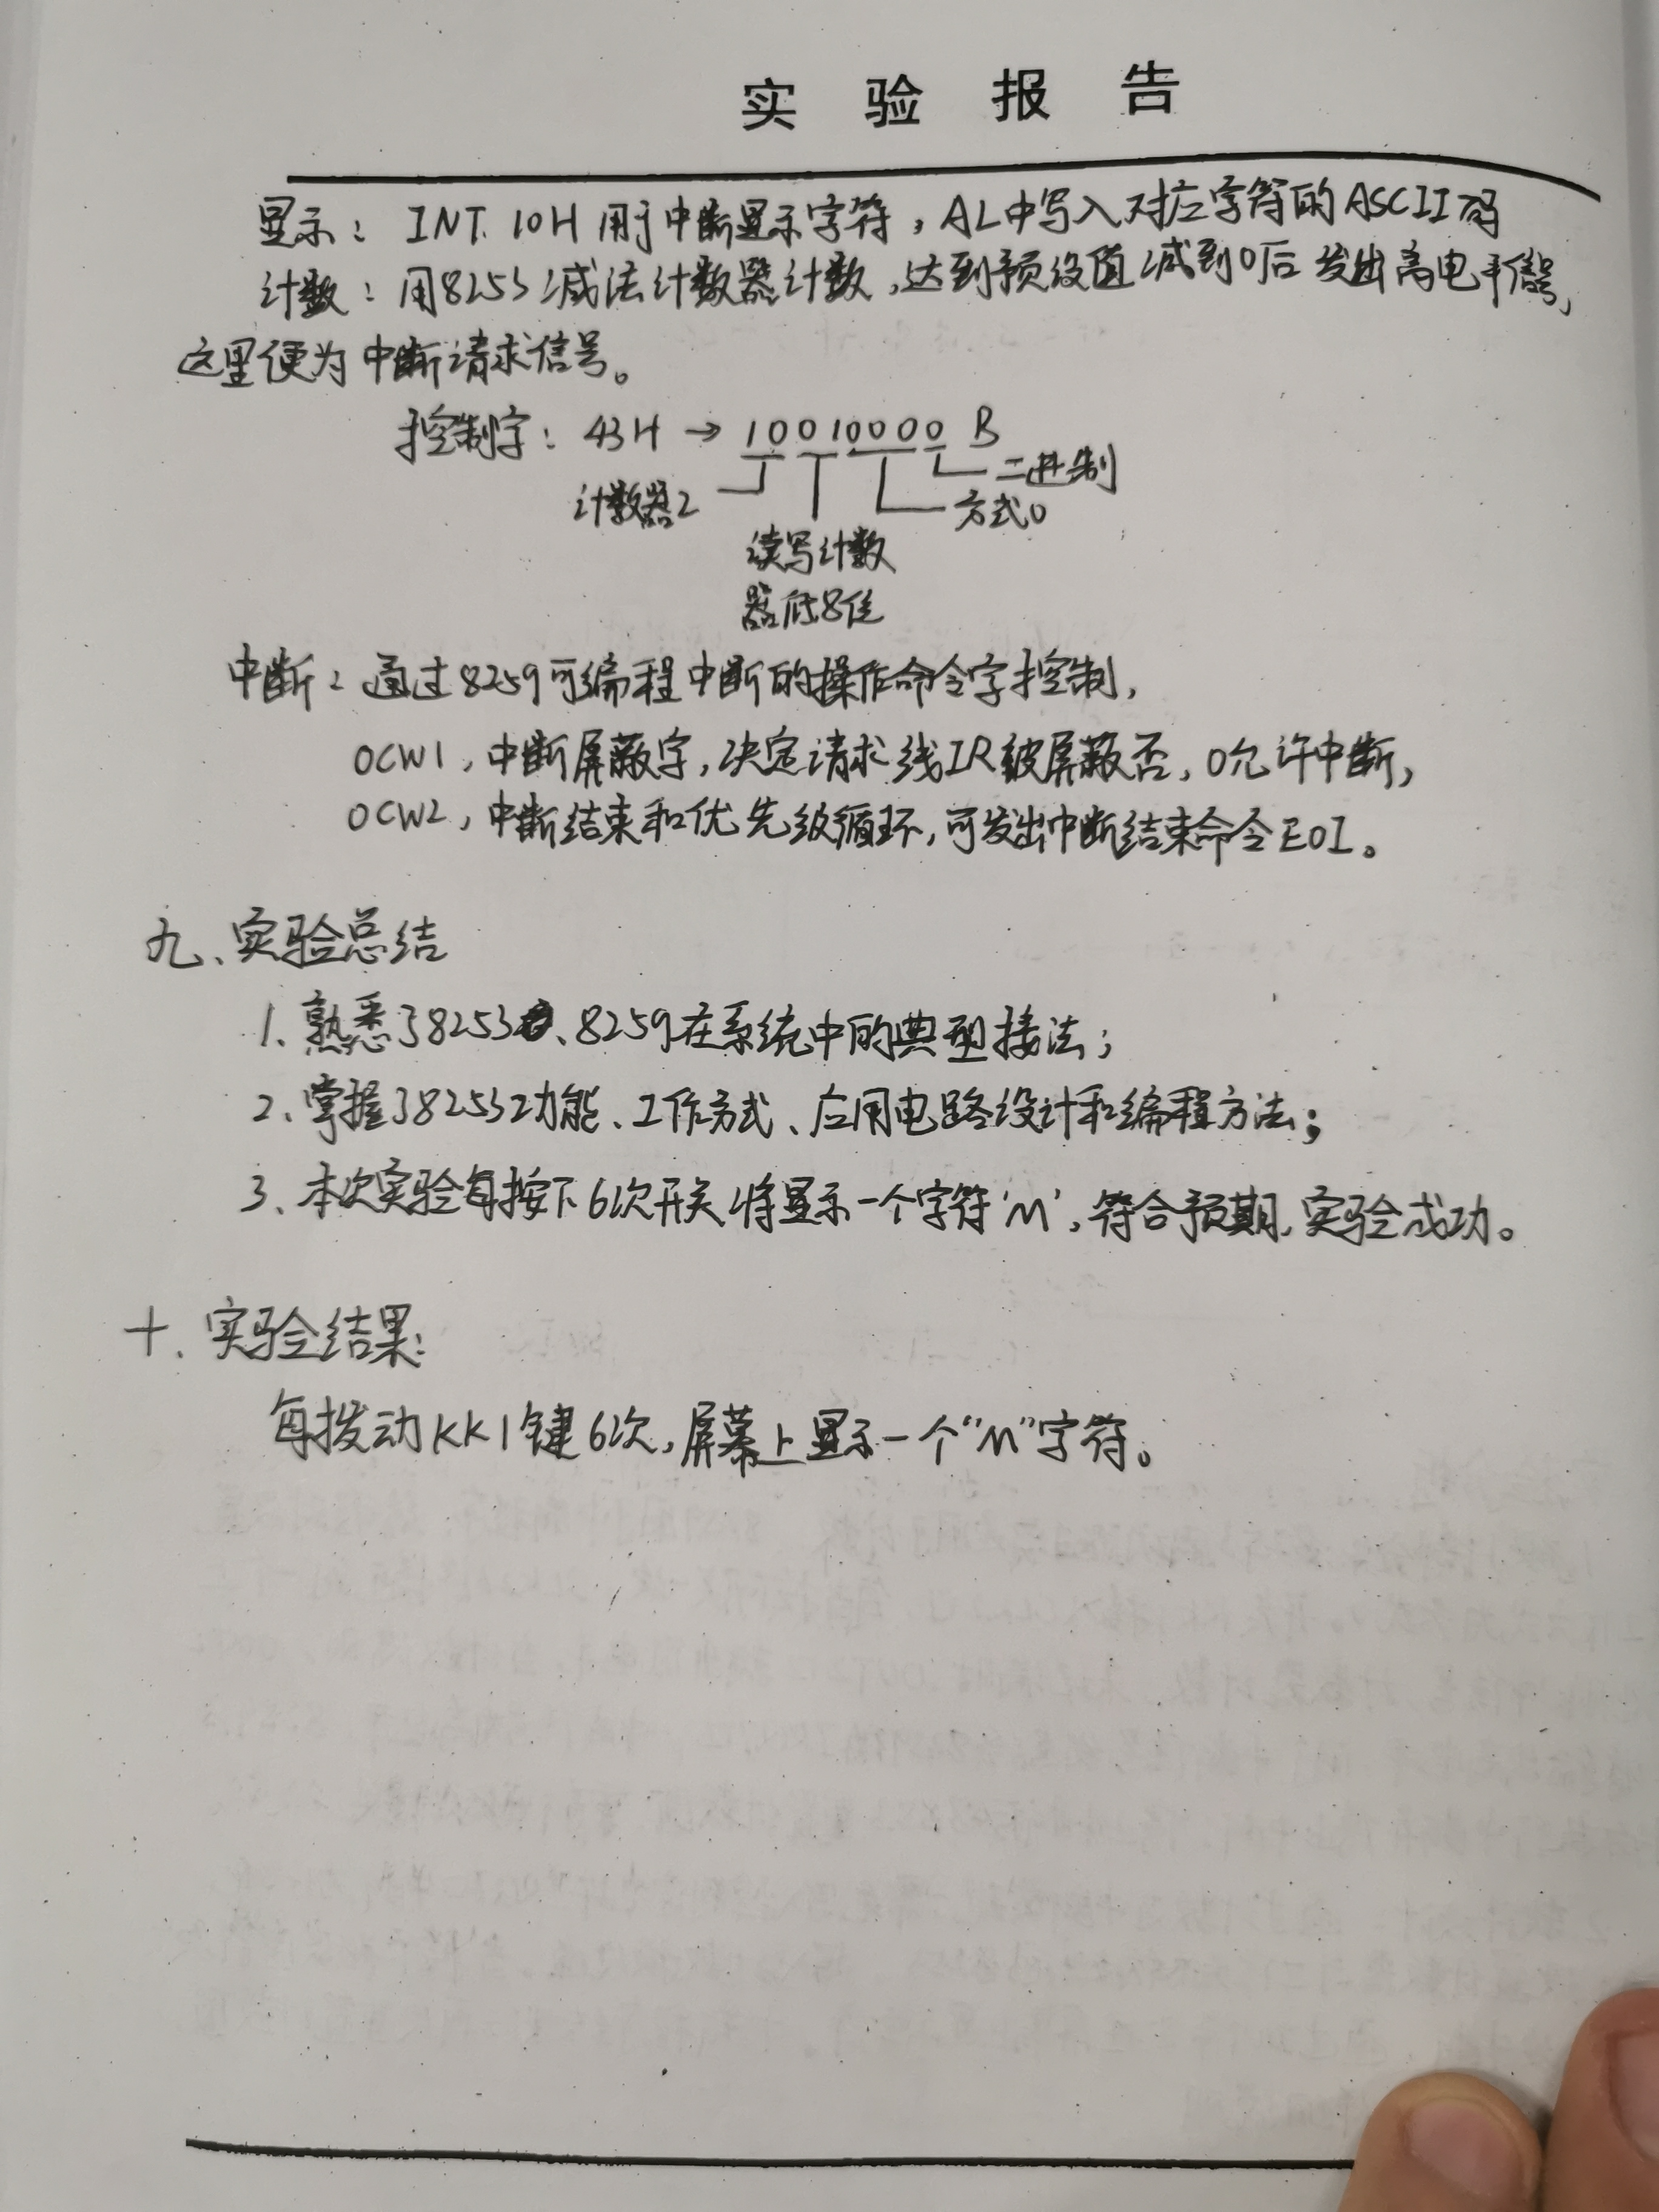 实验报告
显示：INT 10H 用于中断显示字符，AL中写入对应字符的ASCII码
计数：用8253减法计数器计数，达到预设值减到0后发出高电平信号，
这里便为中断请求信号。
控制字：43H → 10010000 B
二进制
计数器2
方式0
读写计数
器低8位
中断：通过8259可编程中断的操作命令字控制，
OCW1，中断屏蔽字，决定请求线IR被屏蔽否，0允许中断，
OCW2，中断结束和优先级循环，可发出中断结束命令EOI。
九、实验总结
1、熟悉了8253、8259在系统中的典型接法；
2、掌握了8253功能、工作方式、应用电路设计和编程方法；
3、本次实验每按下6次开关将显示一个字符'M'，符合预期，实验成功。
十、实验结果：
每拨动KK1键6次，屏幕上显示一个“M”字符。